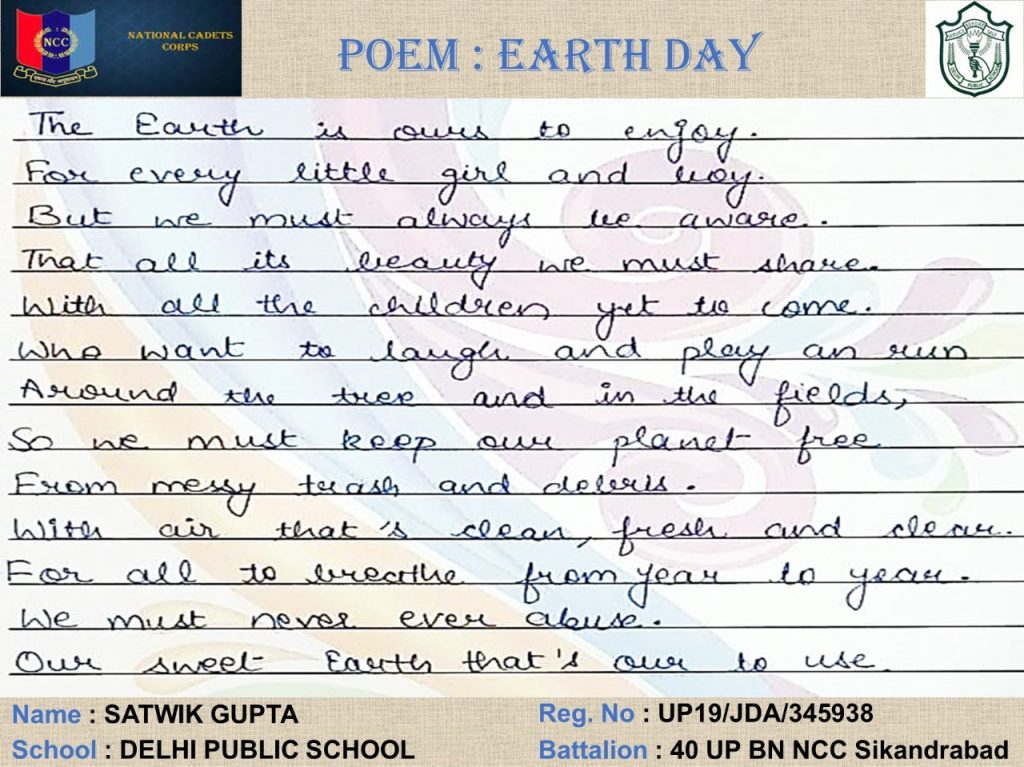 NCC
NATIONAL CADETS
CORPS
POEM : EARTH DAY
The Earth is ours to enjoy.
For every little girl and boy.
But we must always be aware.
That all its beauty we must share.
With all the children yet to come.
Who want to laugh and play an run
Around the tree and in the fields,
So we must keep our planet free
From messy trash and debris.
With air that's clean, fresh and clear..
For all to breathe from year to year.
We must never ever abuse.
Our sweet Earth that's our to use.
Name : SATWIK GUPTA
Reg. No : UP19/JDA/345938
School : DELHI PUBLIC SCHOOL
Battalion : 40 UP BN NCC Sikandrabad